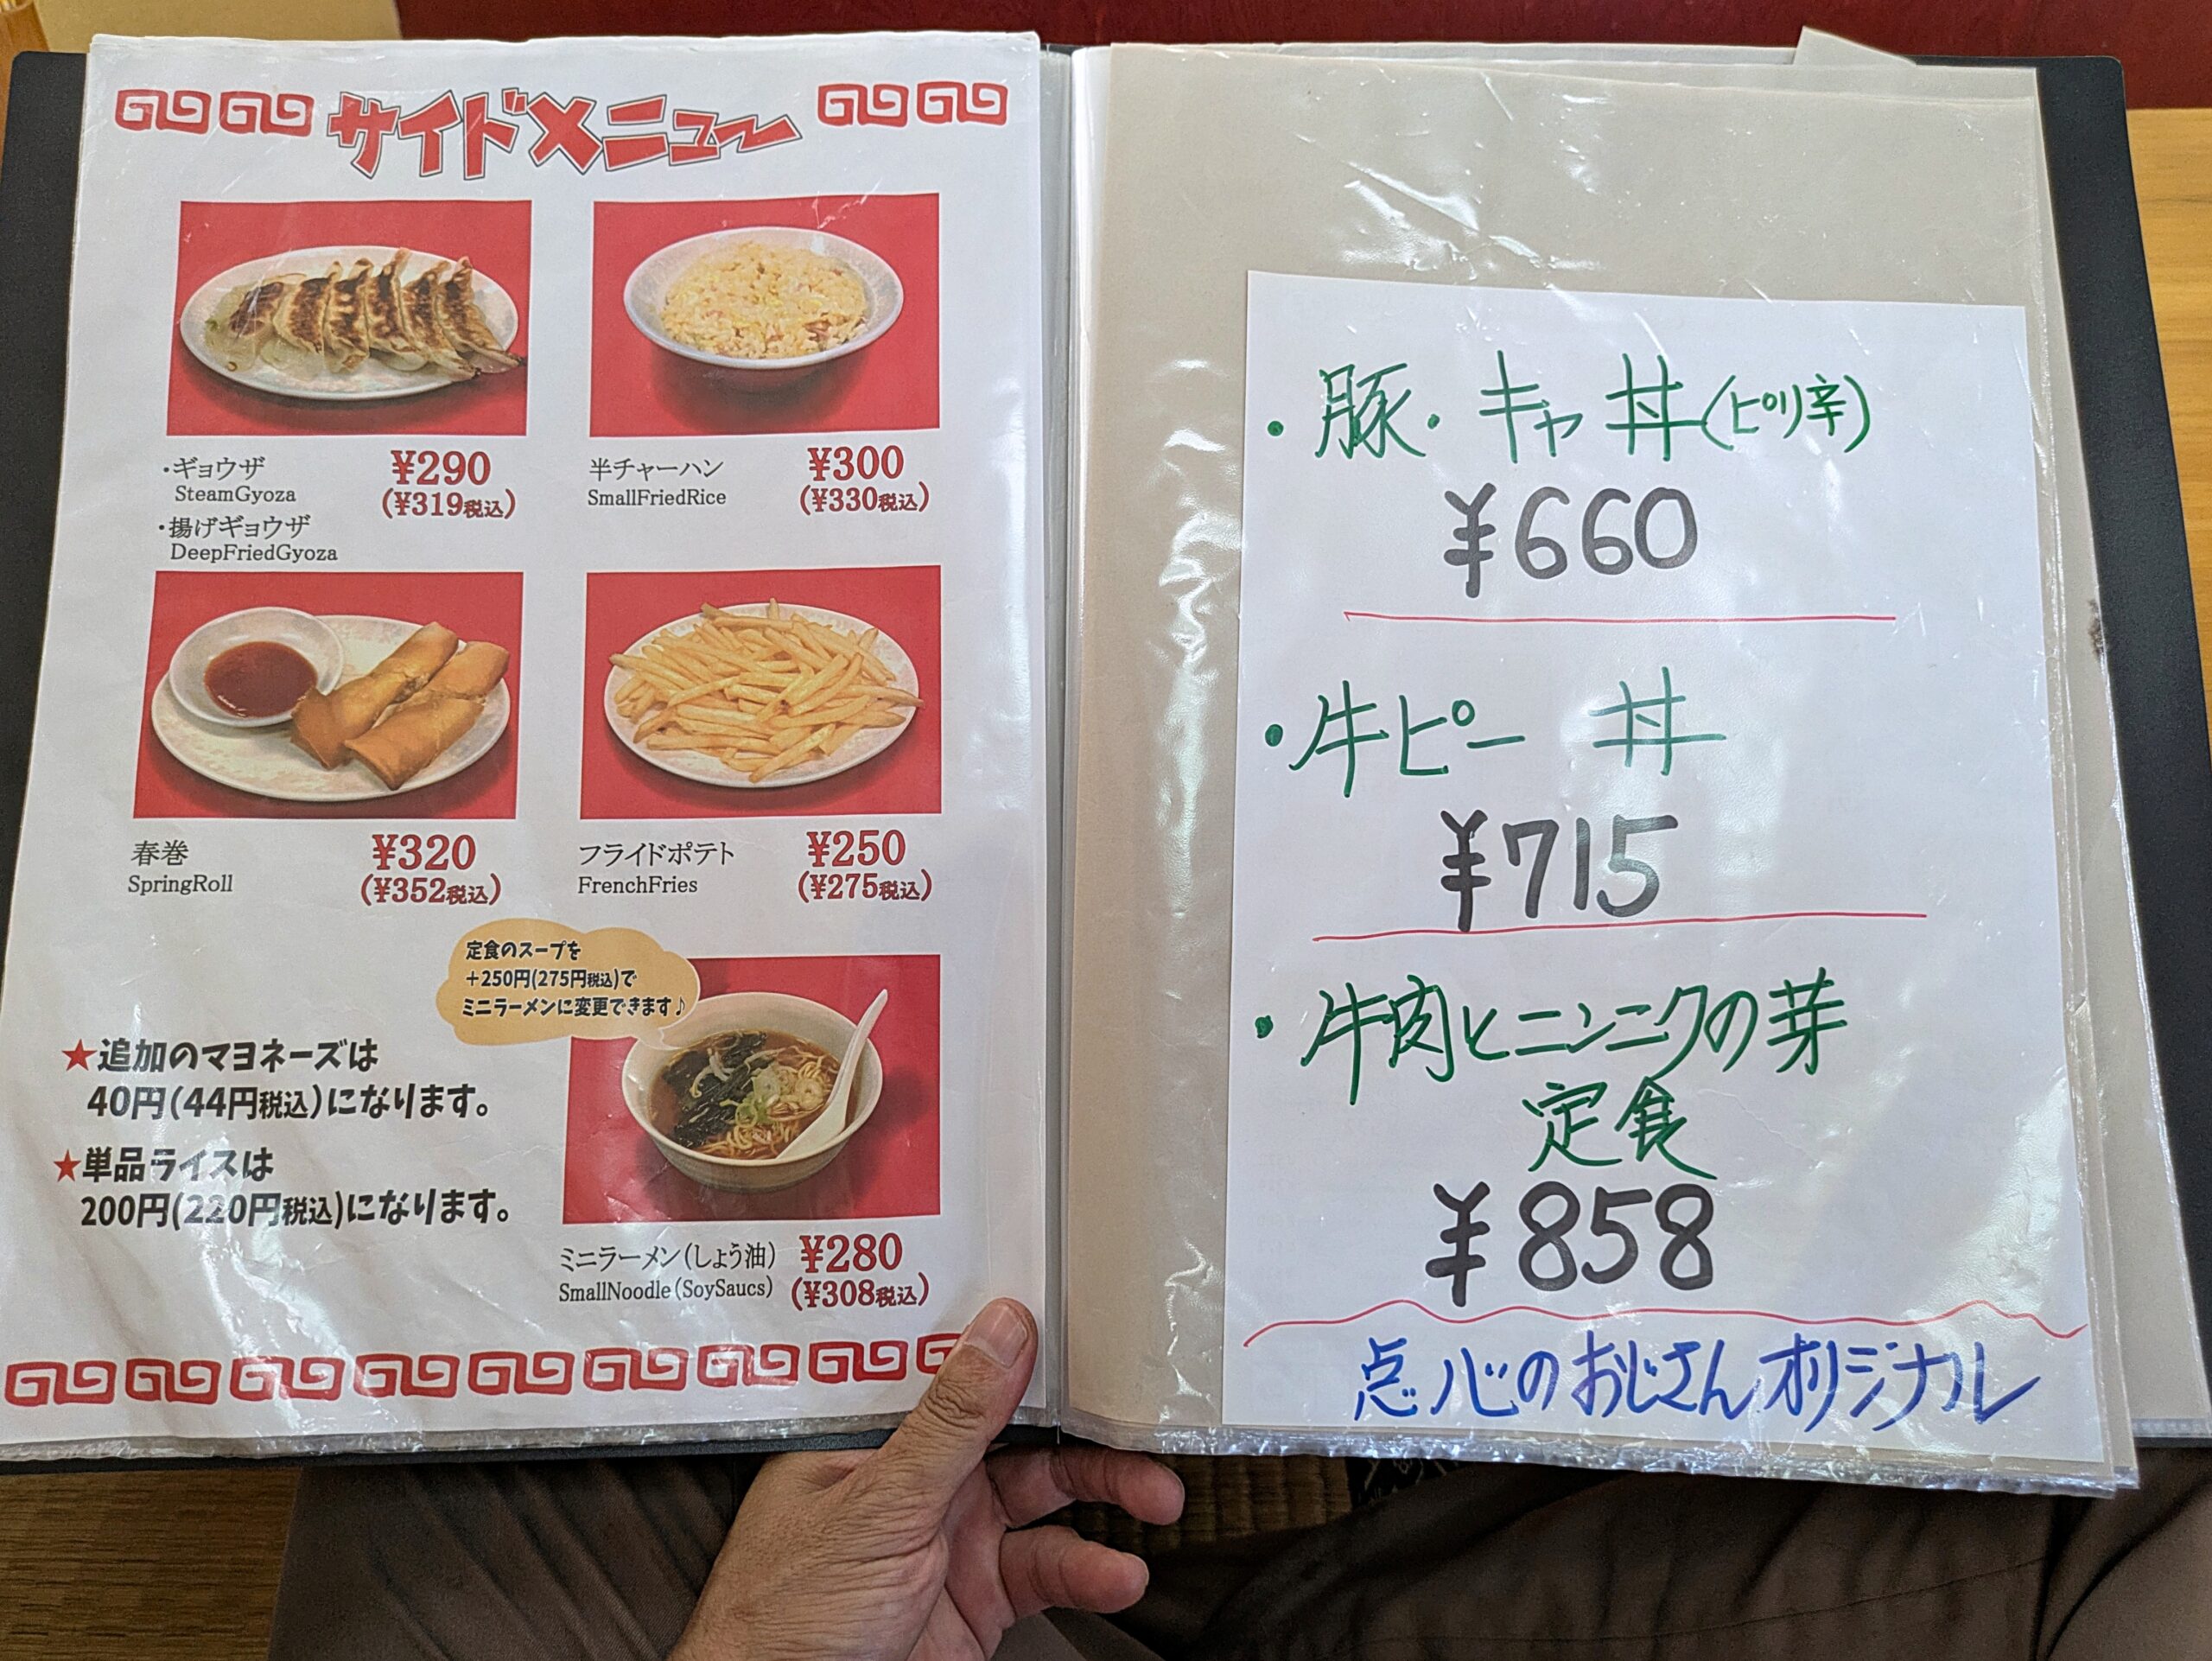 サイドメニュー
・ギョウザ ¥290
SteamGyoza (¥319税込)
・揚げギョウザ
DeepFriedGyoza
半チャーハン ¥300
SmallFriedRice (¥330税込)
春巻 ¥320
SpringRoll (¥352税込)
フライドポテト ¥250
FrenchFries (¥275税込)
定食のスープを
+250円(275円税込)で
ミニラーメンに変更できます♪
★追加のマヨネーズは
40円(44円税込)になります。
★単品ライスは
200円(220円税込)になります。
ミニラーメン(しょう油) ¥280
SmallNoodle(SoySaucs) (¥308税込)
・豚・キャ丼(ピリ辛)
¥660
・牛ピー 丼
¥715
・牛肉とニンニクの芽
定食
¥858
点心のおじさんオリジナル